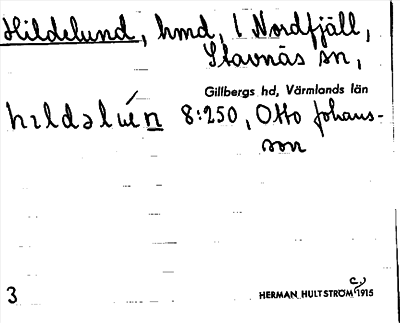 Hildelund, hmd, i Nordfjäll,
Stavnäs sn,
Gillbergs hd, Värmlands län
8:250, Otto Johans-
son
3
HERMAN HULTSTRÖM c. 1915